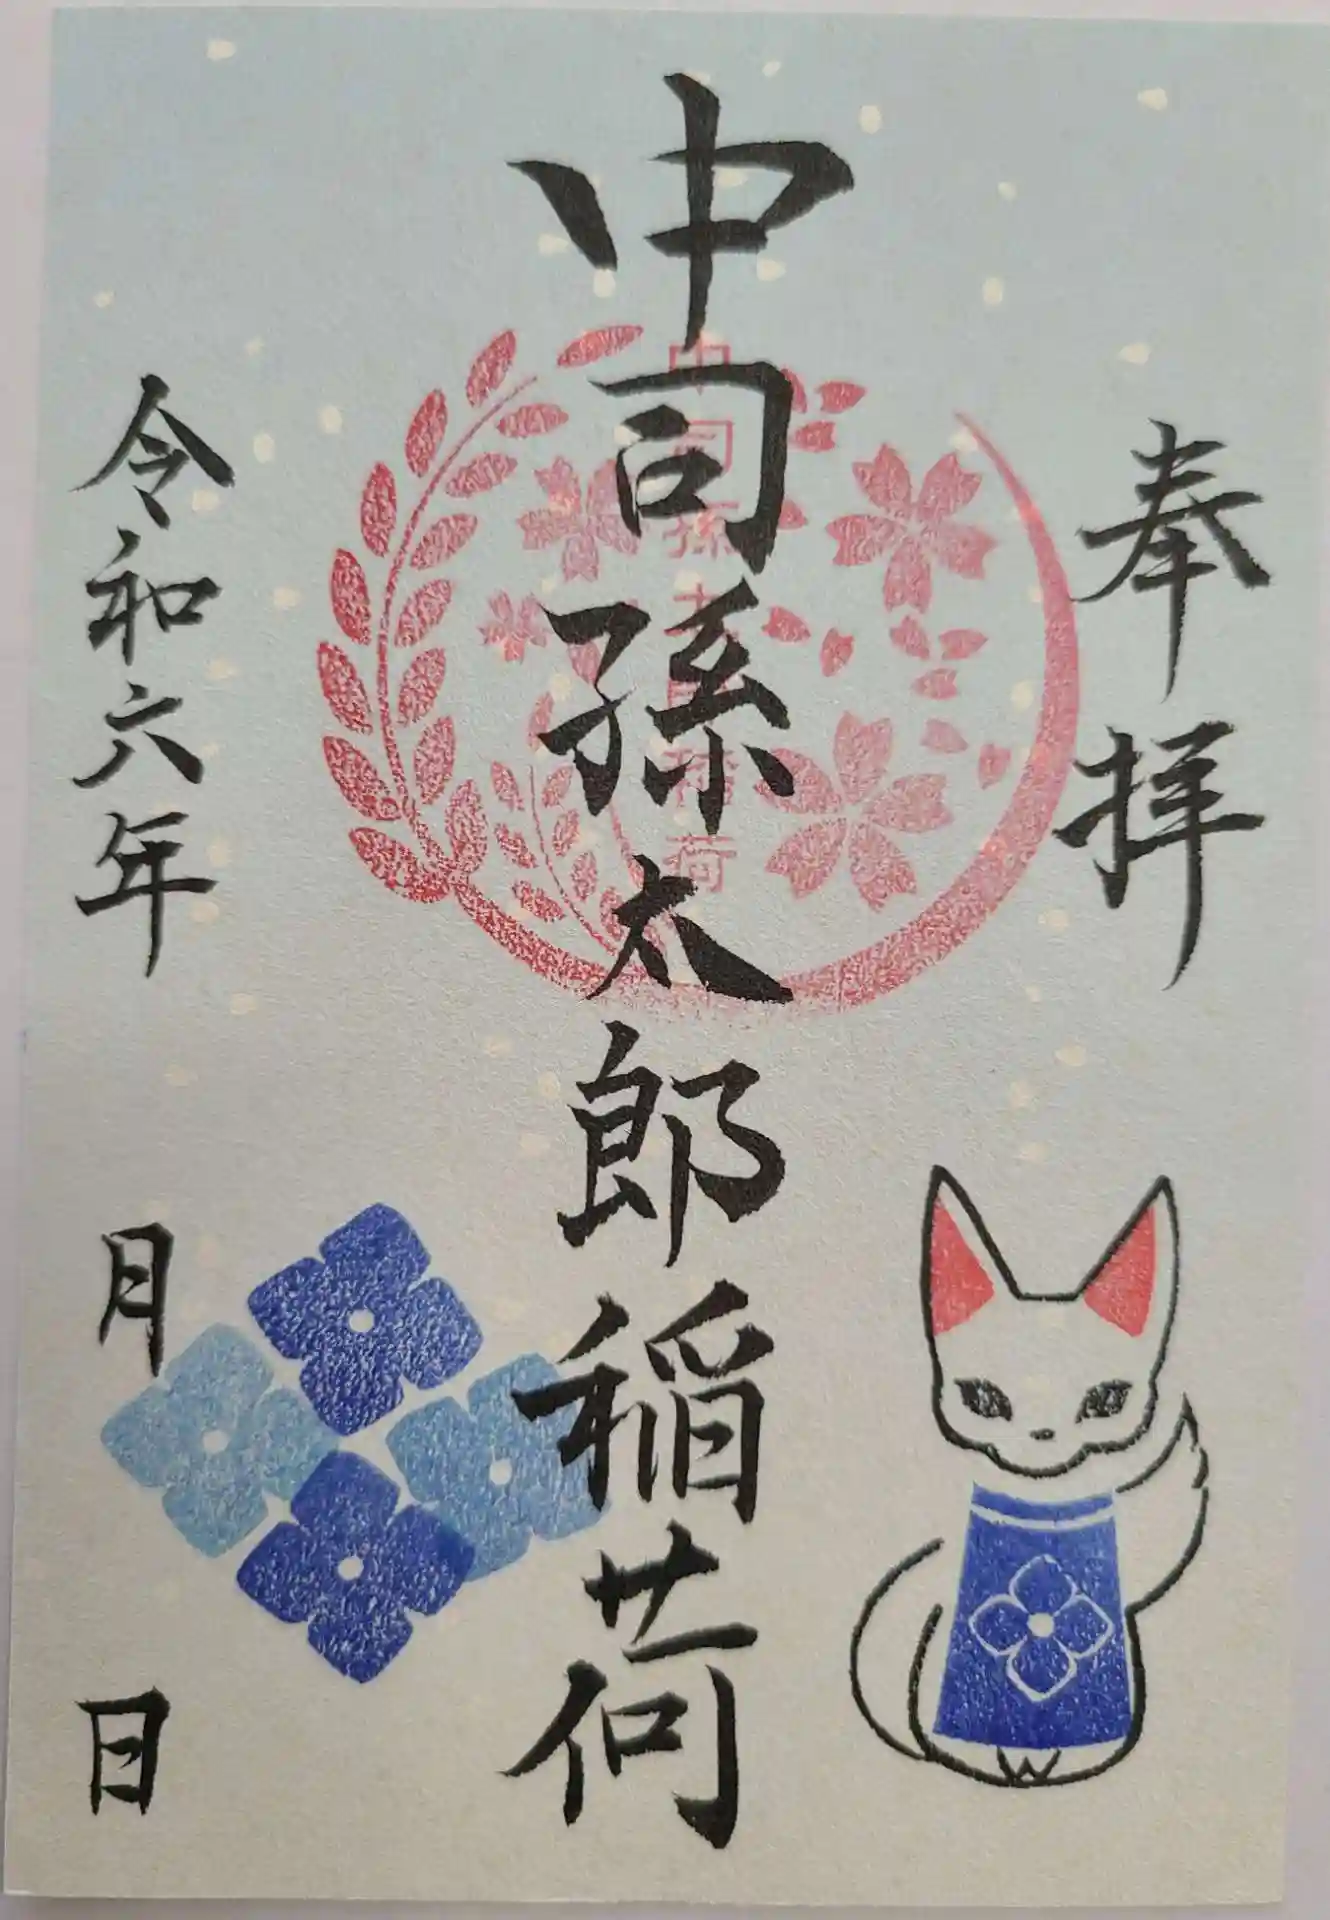 奉拝
中司孫太郎稲荷
中司孫太郎稲荷
令和六年
月
日